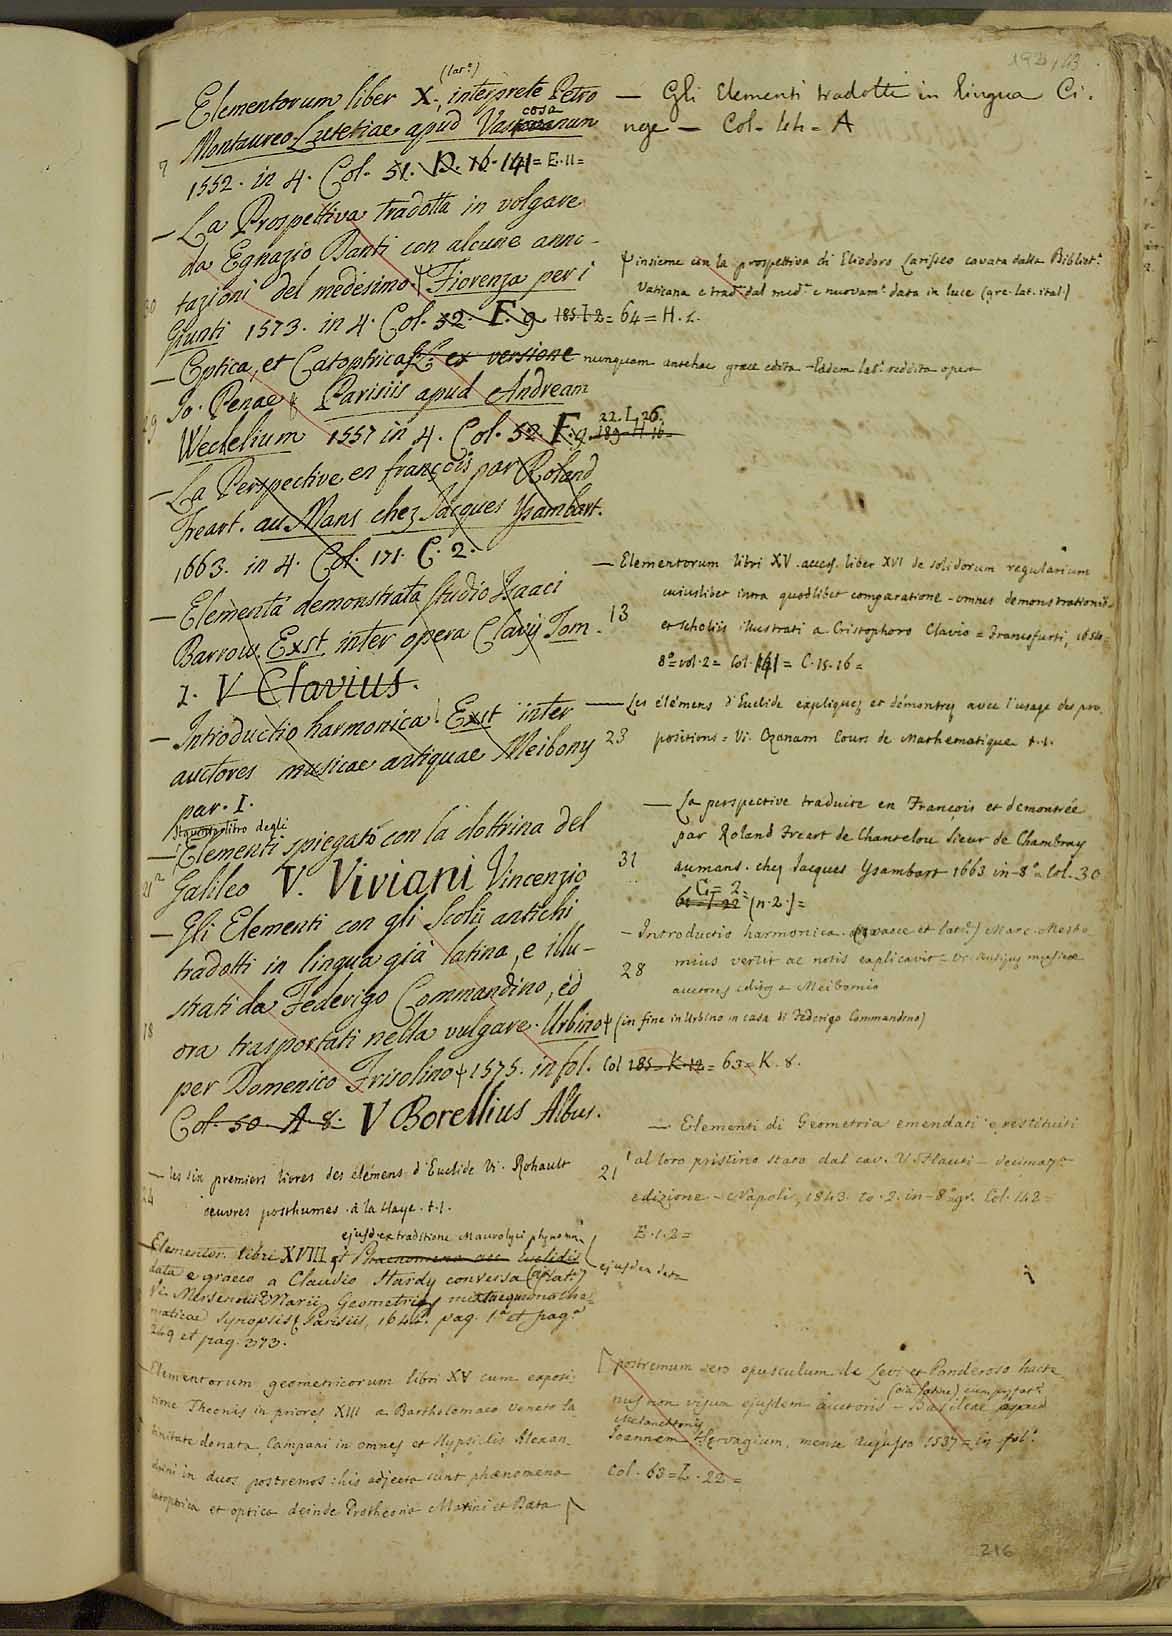 192,,43
(lat.e)
— Elementorum liber X., interprete Petro
Montaureo Lutetiae apud Vascosanum
cosa
7
1552. in 4. Col. 51. D. 16. 141 = E. 11 =
— La Prospettiva tradotta in volgare
da Egnazio Danti con alcune anno-
tazioni del medesimo. Fiorenza per i
30
Giunti 1573. in 4. Col. 32. F. 9. 185. I. 2 = 64 = H. 2.
— Optica, et Catoptrica ex versione
Jo. Penae Parisiis apud Andream
29
Wechelium 1557 in 4. Col. 52. F. 9. 189. H. 16
22. I. 26.
— La Perspective en françois par Roland
Freart. au Mans chez Jacques Ysambart.
1663. in 4. Col. 171. C. 2.
— Elementa demonstrata studio Isaaci
Barrow. Exst. inter opera Clavij Tom.
1. V Clavius.
— Introductio harmonica. Exst inter
auctores musicae antiquae Meibony
par. I.
Il quinto libro degli
— Elementi spiegati con la dottrina del
21 2
Galileo V. Viviani Vincenzio
— Gli Elementi con gli Scolii antichi
tradotti in lingua già latina, e illu-
strati da Federigo Commandino, ed
18
ora trasportati nella vulgare. Urbino
per Domenico Frisolino 1575. in fol.
Col. 50. A. 8. V Borellius Albus.
— les six premiers livres des élémens d'Euclide Vi. Rohault
24
œuvres posthumes. à la Haye. t. 1.
ejusd. ex traditione Maurolyci phænomena
— Elementor. libri XVIII et Phaenomena Euclidis
data e graeco a Claudio Hardy conversa (lat.)
ejusdem data
Vi. Mersennii Marii Geometriae mixtaeque mathe-
maticae synopsis Parisiis, 1644. pag. 1.a et pag.a
249 et pag. 373.
— Elementorum geometricorum libri XV cum exposi-
tione Theonis in priores XIII a Bartholomaeo Veneto la
tinitate donata, Campani in omnes et Hypsiclis Alexan-
drini in duos postremos: his adjecta sunt phænomena
catoptrica et optica deinde Protheoria Marini et Data
— Gli Elementi tradotti in lingua Ci-
nese — Col. lett. = A
insieme con la prospettiva di Eliodoro Larisseo cavata dalla Bibliot.a
Vaticana e trad.a dal med.o e nuovam.e data in luce (gre. lat. ital.)
nunquam antehac graece edita. Eadem lat.e reddita opera
— Elementorum libri XV. access. liber XVI de solidorum regularium
cuiuslibet intra quodlibet comparatione - omnes demonstrationib.
13
et scholiis illustrati a Cristophoro Clavio = Francofurti, 1654=
8.o vol. 2 = Col. 141 = C. 15. 16 =
— Les élémens d'Euclide expliquez et démontrez avec l'usage des pro-
23
positions = Vi. Ozanam Cours de Mathematique t. 1.
— La perspective traduite en François et demontrée
par Roland Freart de Chantelou Sieur de Chambray
31
au mans. chez Jacques Ysambart 1663 in - 8.o Col. 30
G = 2 =
61 = I 22 (n. 2.) =
— Introductio harmonica. (graece et lat.e) Marc. Meibo-
28
mius vertit ac notis explicavit = Vi. Antiquæ musicæ
auctores editos a Meibomio
(in fine in Urbino in casa di Federigo Commandino)
Col 185. K. 12 = 63 = K. 8.
— Elementi di Geometria emendati e restituiti
21
al loro pristino stato dal cav. V. Flauti — decima 7.a
edizione - Napoli, 1843. to. 2. in - 8.o gr. Col. 142 =
E. 1. 2 =
postremum vero opusculum de Levi et Ponderoso hacte
nus non visum ejusdem auctoris — Basileae apud
Melanctonis
Joannem Hervagium, mense Augusto 1537 = in fol.o
Col. 63 = L. 22 =
216